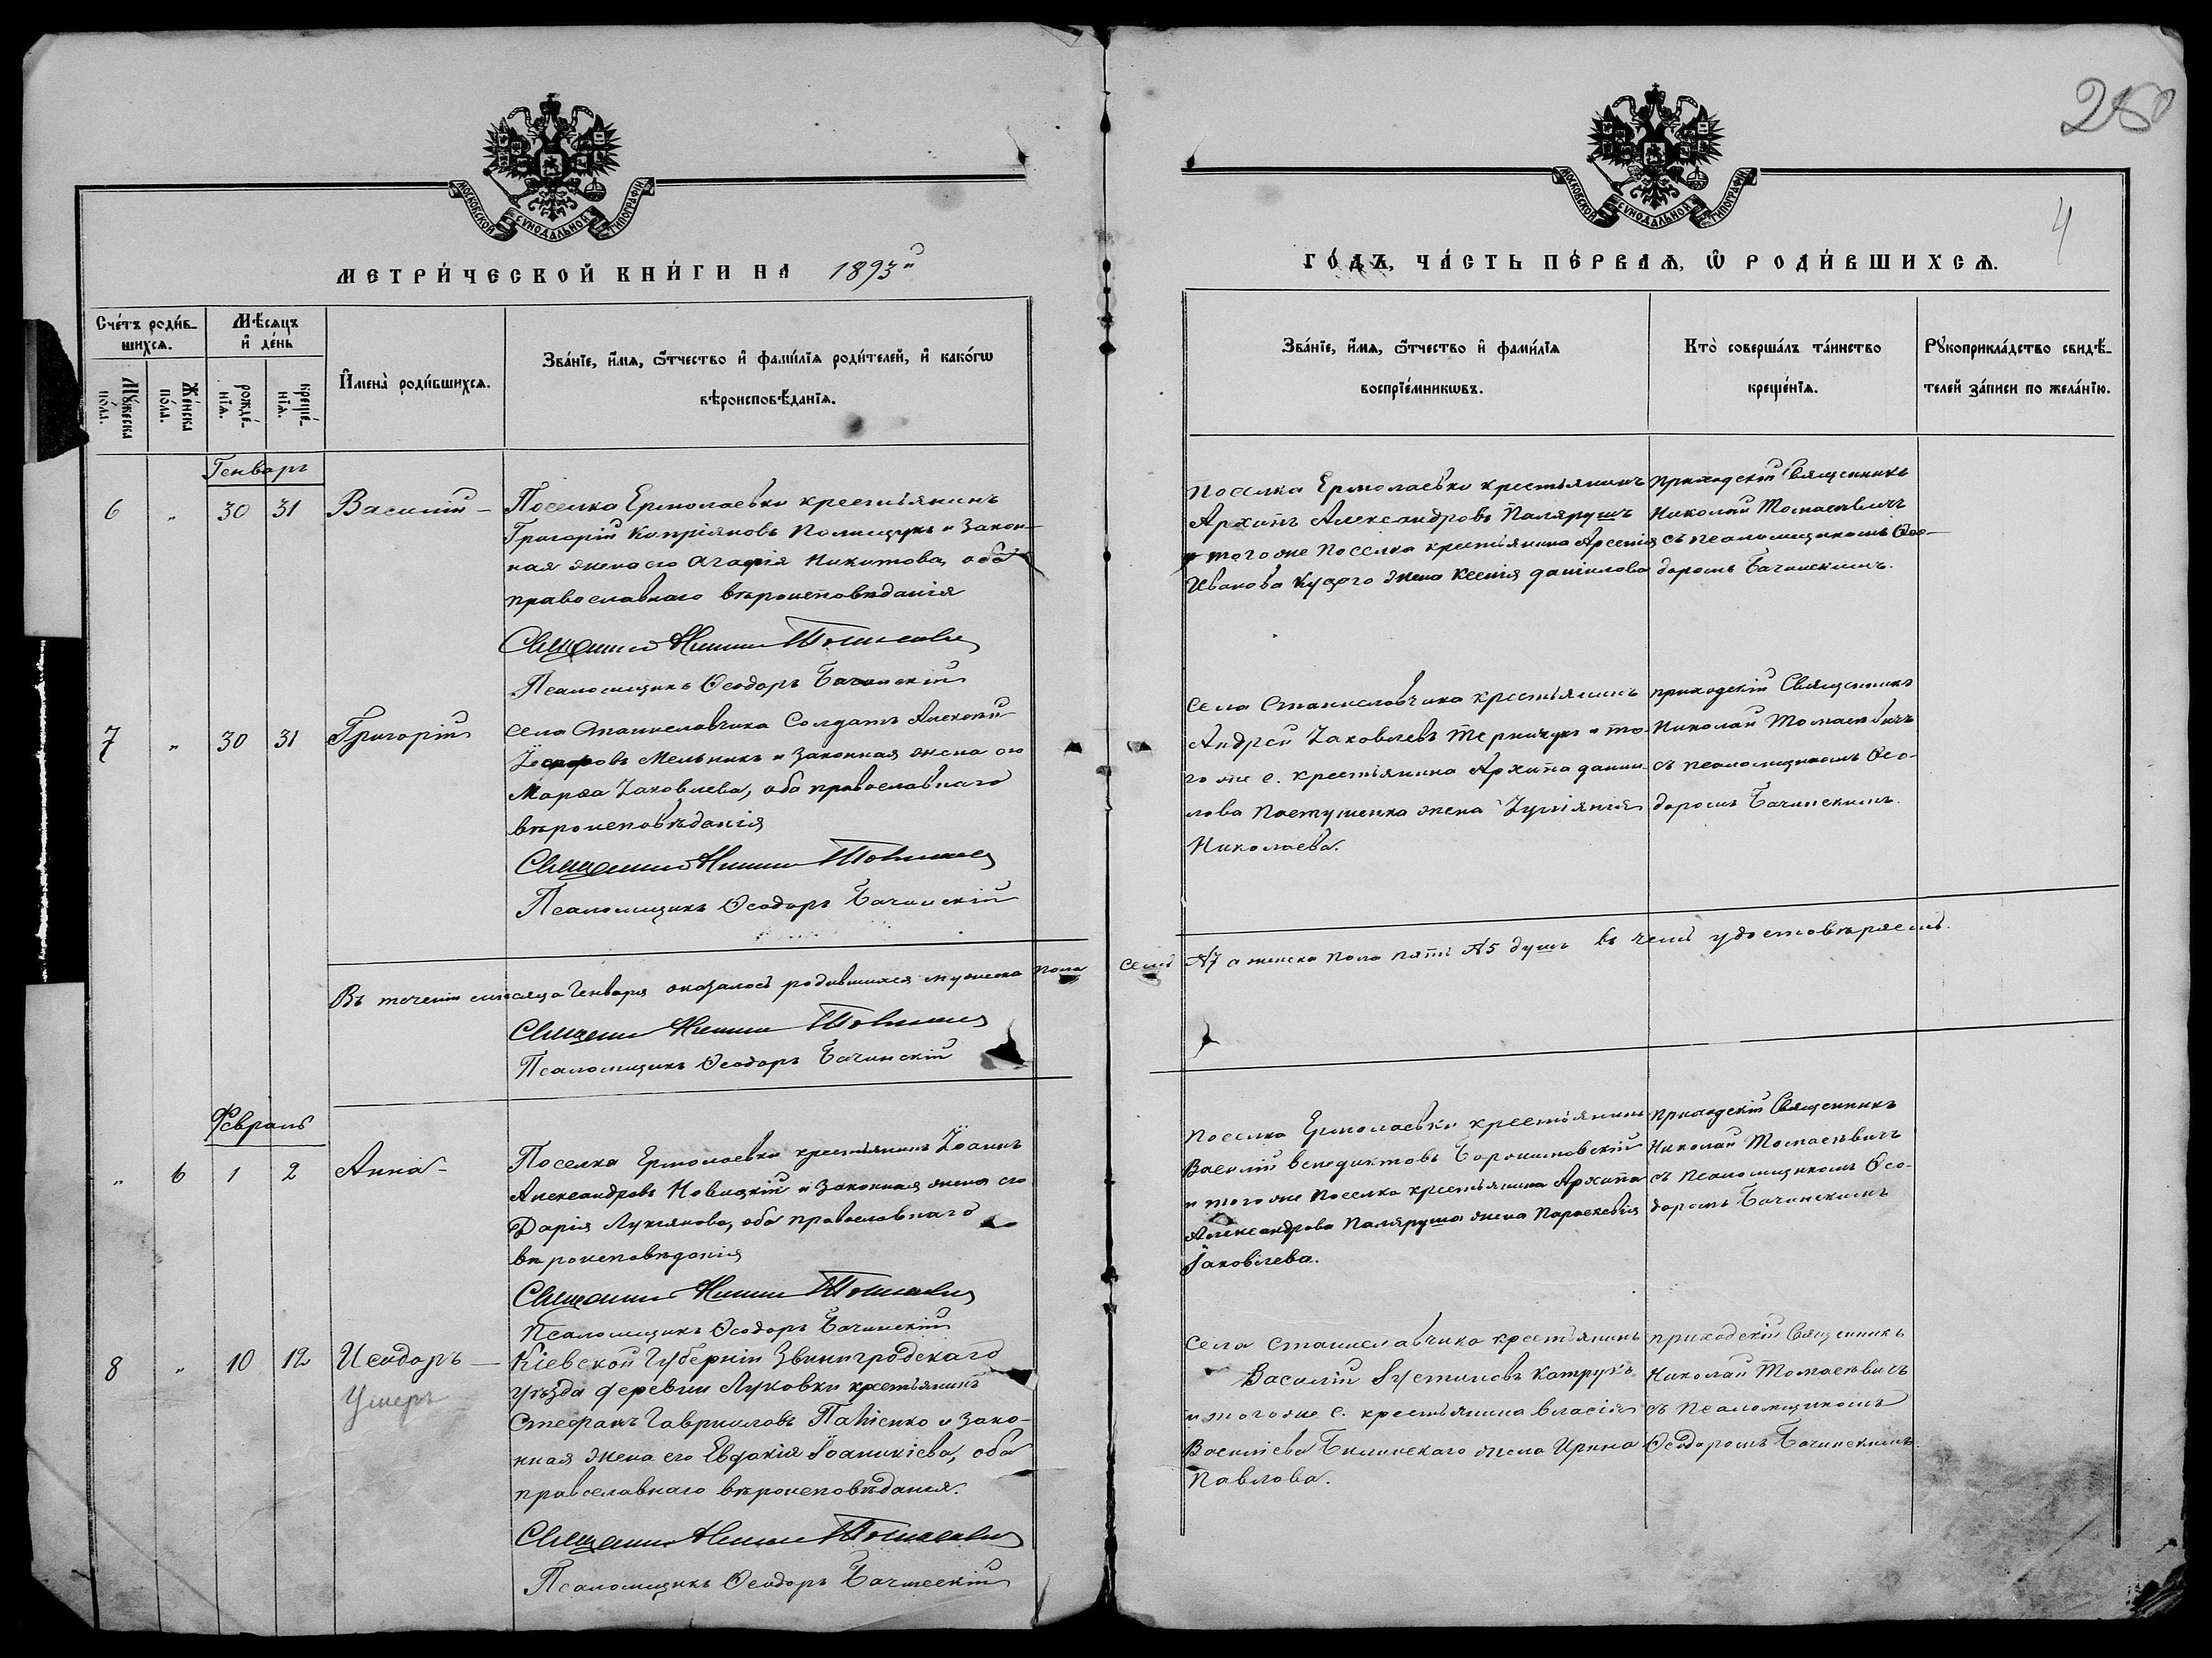 250
4
МОСКОВСКОЙ СѴНОДАЛЬНОЙ ТИПОГРАФІИ
МОСКОВСКОЙ СѴНОДАЛЬНОЙ ТИПОГРАФІИ
МЕТРИ́ЧЕСКОЙ КНИ́ГИ НА 1893й
ГО́ДЪ, ЧА́СТЬ ПЕ́РВАѦ, Ѿ РОДИ́ВШИХСѦ.
Сче́тъ роди́в-
шихсѧ.
Мꙋжеска
по́ла.
Же́нска
по́ла.
Мѣ́сѧцъ
и҆ де́нь
рожде́-
нїѧ.
креще́-
нїѧ.
И҆мена̀ роди́вшихсѧ.
Зва́нїе, и҆́мѧ, ѻ҆́тчество и҆ фами́лїѧ роди́телей, и҆ како́гѡ
вѣроисповѣ́данїѧ.
Зва́нїе, и҆́мѧ, ѻ҆́тчество и҆ фами́лїѧ
воспрїе́мникѡвъ.
Кто̀ соверша́лъ та́инство
креще́нїѧ.
Рꙋкоприкла́дство свидѣ́-
телей за́писи по жела́нїю.
Генварь
6 " 30 31 Василій -
Поселка Ермолаевки крестьянинъ
Григорій Кипріяновъ Полищукъ и закон-
ная жена его Агафія Никитова, оба
православнаго вѣроисповѣданія
Священникъ Николай Томасевичъ
Псаломщикъ Ѳеодоръ Бачинскій
Поселка Ермолаевки крестьянинъ
Архипъ Александровъ Палярушъ
и тогоже поселка крестьянина Арсенія
Иванова Куцого жена Ксенія Даніилова
приходскій Священникъ
Николай Томасевичъ
съ псаломщикомъ Ѳео-
доромъ Бачинскимъ.
7 " 30 31 Григорій
Села Станиславчика Солдатъ Алексѣй
Іосифовъ Мельникъ и законная жена его
Марѳа Іаковлева, оба православнаго
вѣроисповѣданія
Священникъ Николай Томасевичъ
Псаломщикъ Ѳеодоръ Бачинскій
Села Станиславчика крестьянинъ
Андрей Іаковлевъ Терничукъ и то-
го же с. крестьянина Архипа Дани-
лова Пастушенка жена Іуліянія
Николаева.
приходскій Священникъ
Николай Томасевичъ
съ псаломщикомъ Ѳео-
доромъ Бачинскимъ.
Въ теченіи мѣсяца Генваря оказалось родившихся мужеска пола
семь №7 а женска пола пять №5 душъ въ чемъ удостовѣряемъ.
Священникъ Николай Томасевичъ
Псаломщикъ Ѳеодоръ Бачинскій
Февраль
" 6 1 2 Анна -
Поселка Ермолаевки крестьянинъ Іоаннъ
Александровъ Новицкій и законная жена его
Дарія Лукіянова, оба православнаго
вѣроисповѣданія
Священникъ Николай Томасевичъ
Псаломщикъ Ѳеодоръ Бачинскій
Поселка Ермолаевки крестьянинъ
Василій Венедиктовъ
и тогоже поселка крестьянина Архипа
Александрова Паляруша жена Параскевія
Іаковлева.
Приходскій Священникъ
Николай Томасевичъ
съ псаломщикомъ Ѳео-
доромъ Бачинскимъ
8 " 10 12 Исидоръ -
Умеръ
Кіевской Губерніи Звенигродскаго
уѣзда деревни Луковки крестьянинъ
Стефанъ Гавриловъ и зако-
нная жена его Евдокія Іоаникіева, оба
православнаго вѣроисповѣданія.
Священникъ Николай Томасевичъ
Псаломщикъ Ѳеодоръ Бачинскій
Села Станиславчика крестьянинъ
Василій Іустиновъ Катрукъ
и тогоже с. крестьянина Власія
Василіева Билинскаго жена Ирина
Павлова.
приходскій Священникъ
Николай Томасевичъ
съ псаломщикомъ
Ѳеодоромъ Бачинскимъ.